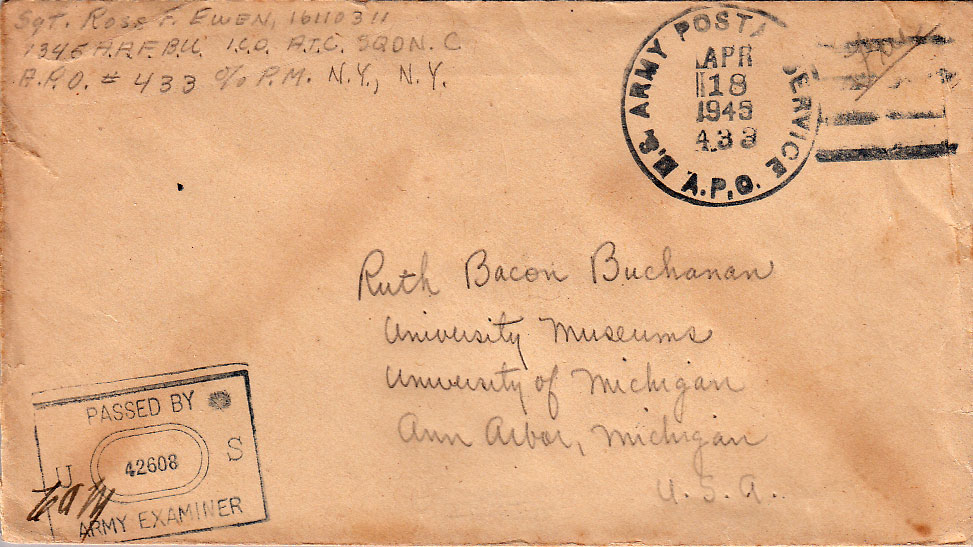 Sgt. Ross F. Ewen, 16110311
1346 A.A.F.B.U. I.C.D. A.T.C. SQDN. C
A.P.O. # 433 % P.M. N.Y., N.Y.
U.S. ARMY POSTAL SERVICE
APR
18
1945
433
A.P.O.
Ruth Bacon Buchanan
University Museums
University of Michigan
Ann Arbor, Michigan
U. S. A.
PASSED BY
U 42608 S
ARMY EXAMINER